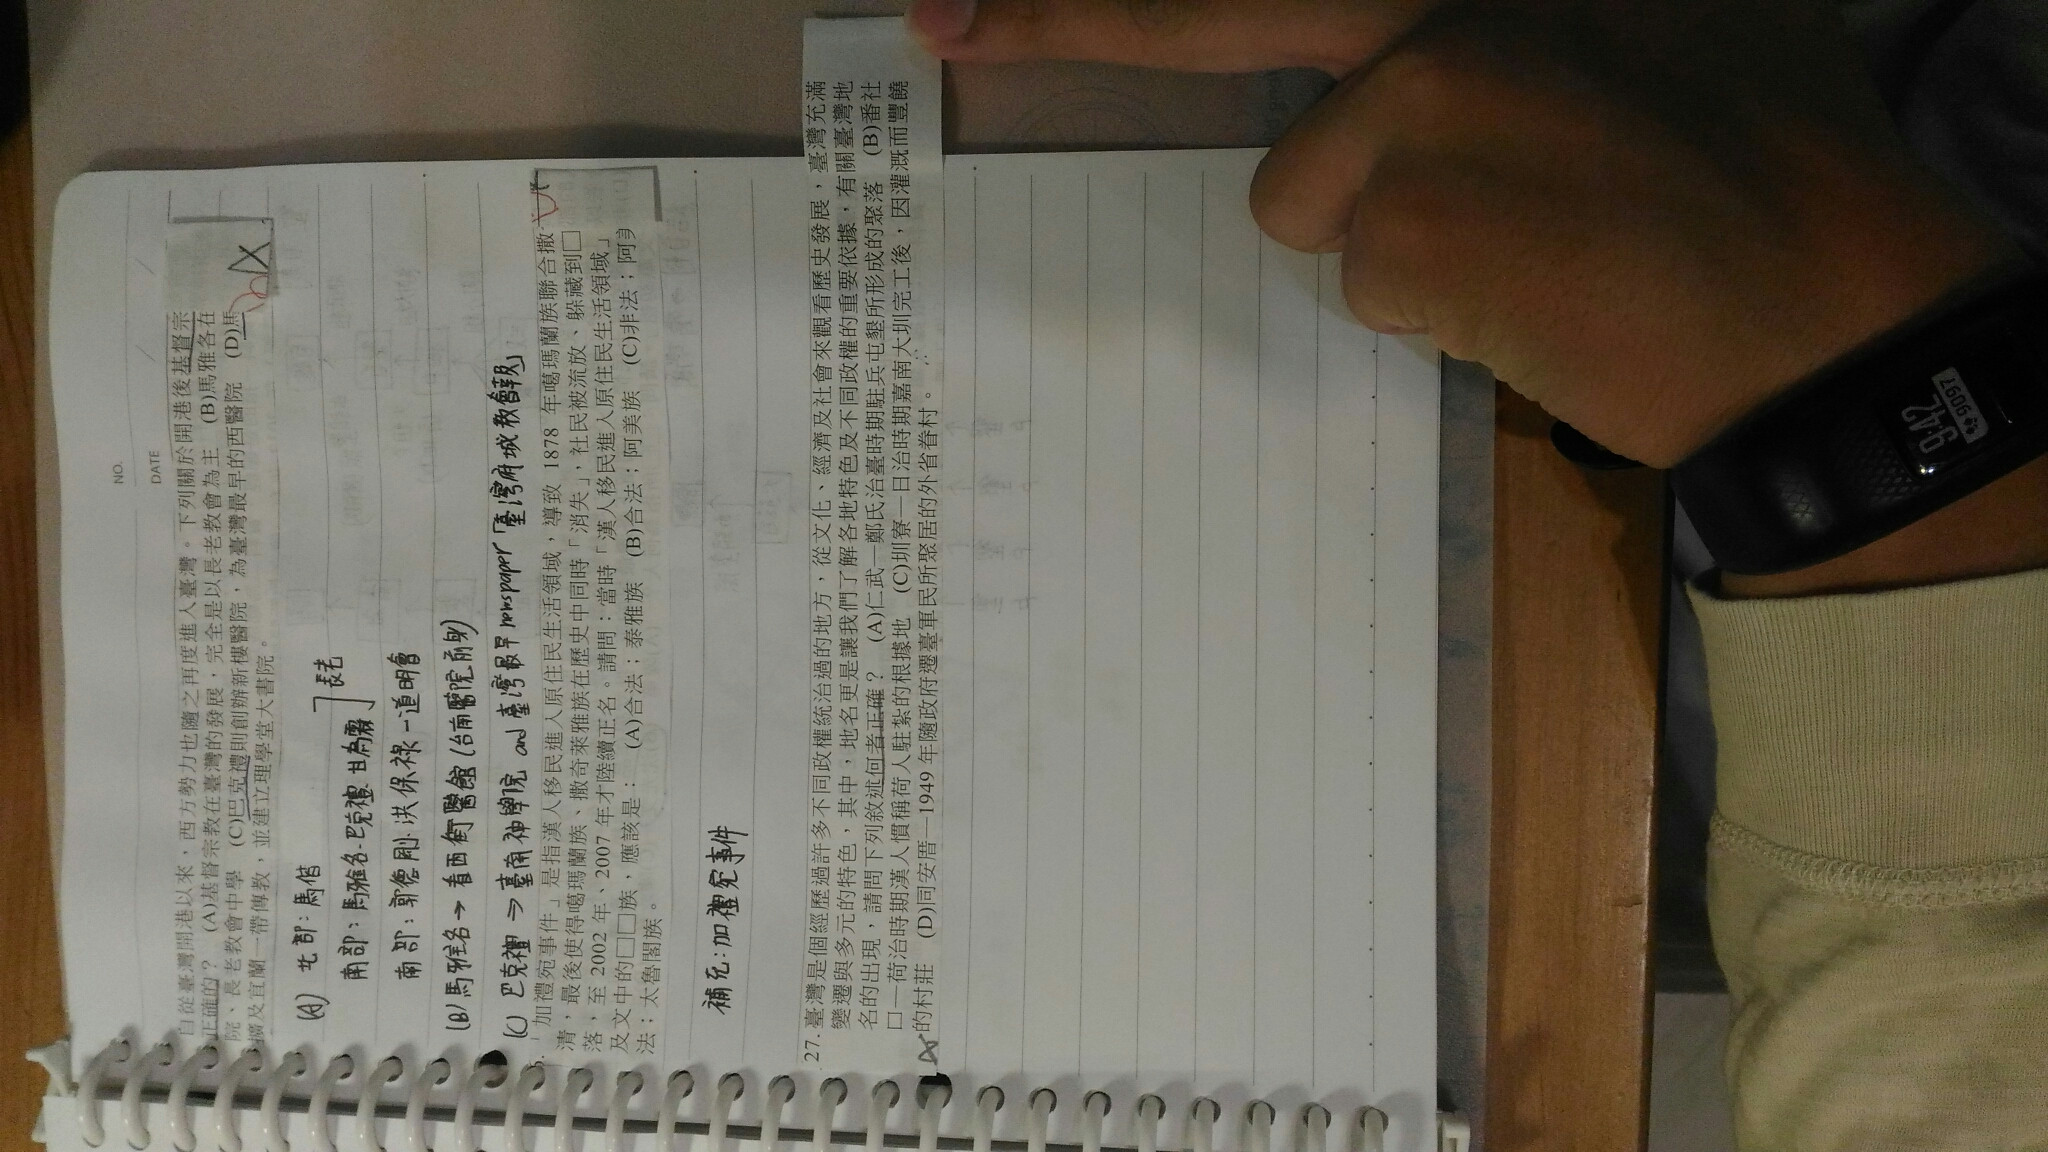 NO.
DATE
自從臺灣開港以來，西方勢力也隨之再度進入臺灣。下列關於開港後基督宗
正確的？ (A)基督宗教在臺灣的發展，完全是以長老教會為主 (B)馬雅各在
院、長老教會中學 (C)巴克禮則創辦新樓醫院，為臺灣最早的西醫院 (D)馬
擴及宜蘭一帶傳教，並建立理學堂大書院。
(A) 北部：馬偕
南部：馬雅各、巴克禮、甘為霖 長老
南部：郭德剛、洪保祿－道明會
(B) 馬雅各→看西街醫館(台南醫院前身)
(C) 巴克禮⇒臺南神學院 and 臺灣最早newspaper「臺灣府城教會報」
「加禮宛事件」是指漢人移民進入原住民生活領域，導致 1878 年噶瑪蘭族聯合撒
清，最後使得噶瑪蘭族、撒奇萊雅族在歷史中同時「消失」，社民被流放、躲藏到□
落，至 2002 年、2007 年才陸續正名。請問：當時「漢人移民進入原住民生活領域」
及文中的□□□族，應該是： (A)合法；泰雅族 (B)合法；阿美族 (C)非法；阿美
法；太魯閣族。
補充：加禮宛事件
27. 臺灣是個經歷過許多不同政權統治過的地方，從文化、經濟及社會來觀看歷史發展，臺灣充滿
變遷與多元的特色，其中，地名更是讓我們了解各地特色及不同政權的重要依據，有關臺灣地
名的出現，請問下列敘述何者正確？ (A)仁武—鄭氏治臺時期駐兵屯墾所形成的聚落 (B)番社
口—荷治時期漢人慣稱荷人駐紮的根據地 (C)圳寮—日治時期嘉南大圳完工後，因灌溉而豐饒
的村莊 (D)同安厝—1949 年隨政府遷臺軍民所聚居的外省眷村。
9:42
9097